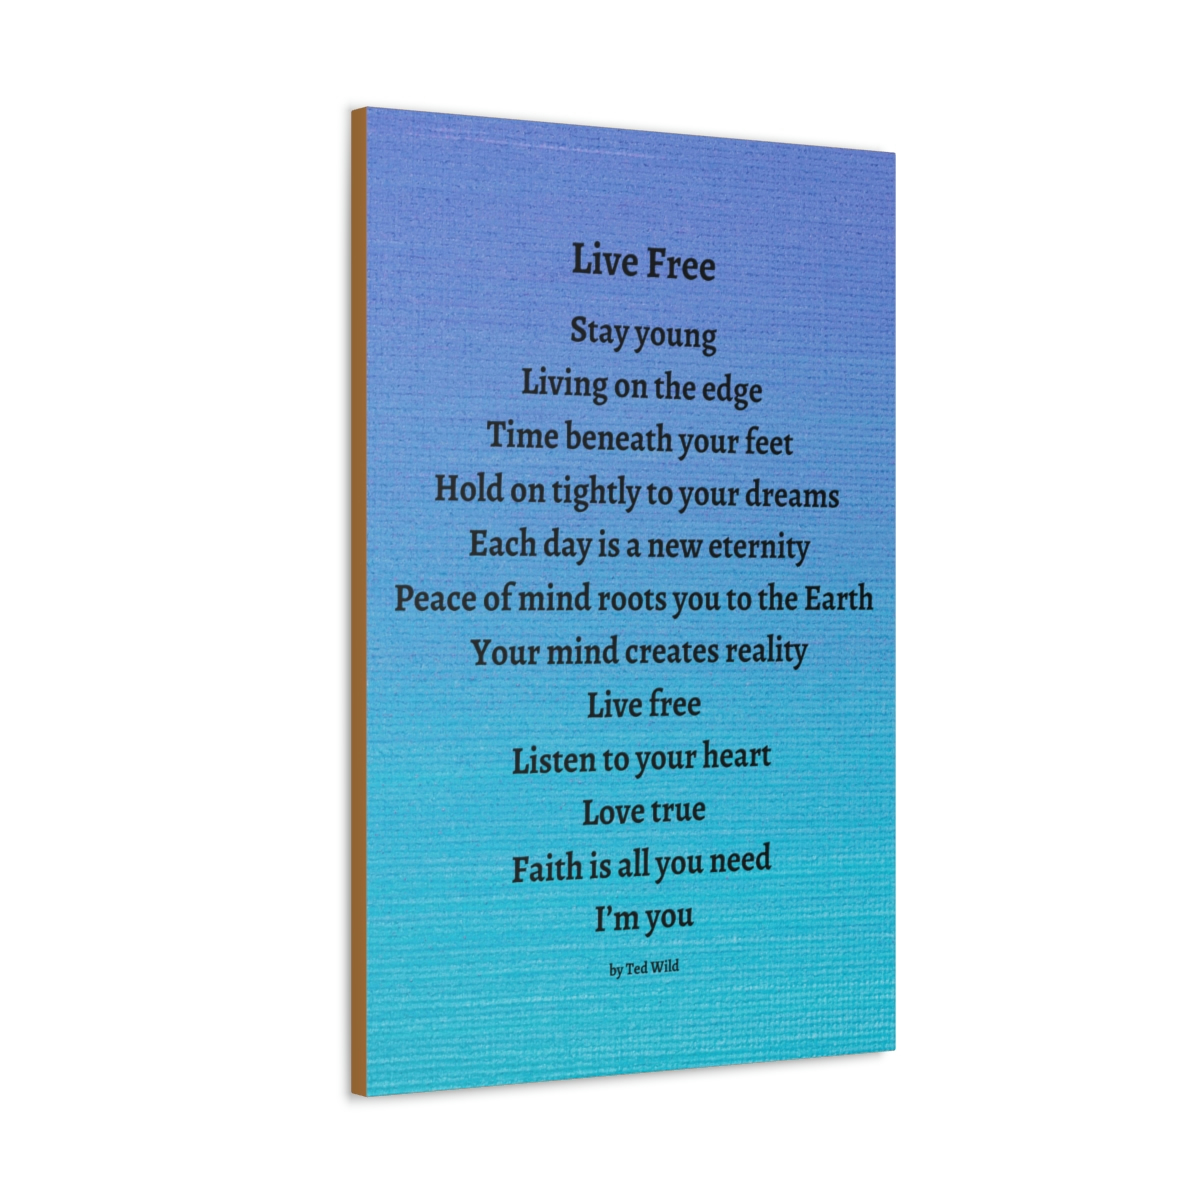 Live Free
Stay young
Living on the edge
Time beneath your feet
Hold on tightly to your dreams
Each day is a new eternity
Peace of mind roots you to the Earth
Your mind creates reality
Live free
Listen to your heart
Love true
Faith is all you need
I’m you
by Ted Wild